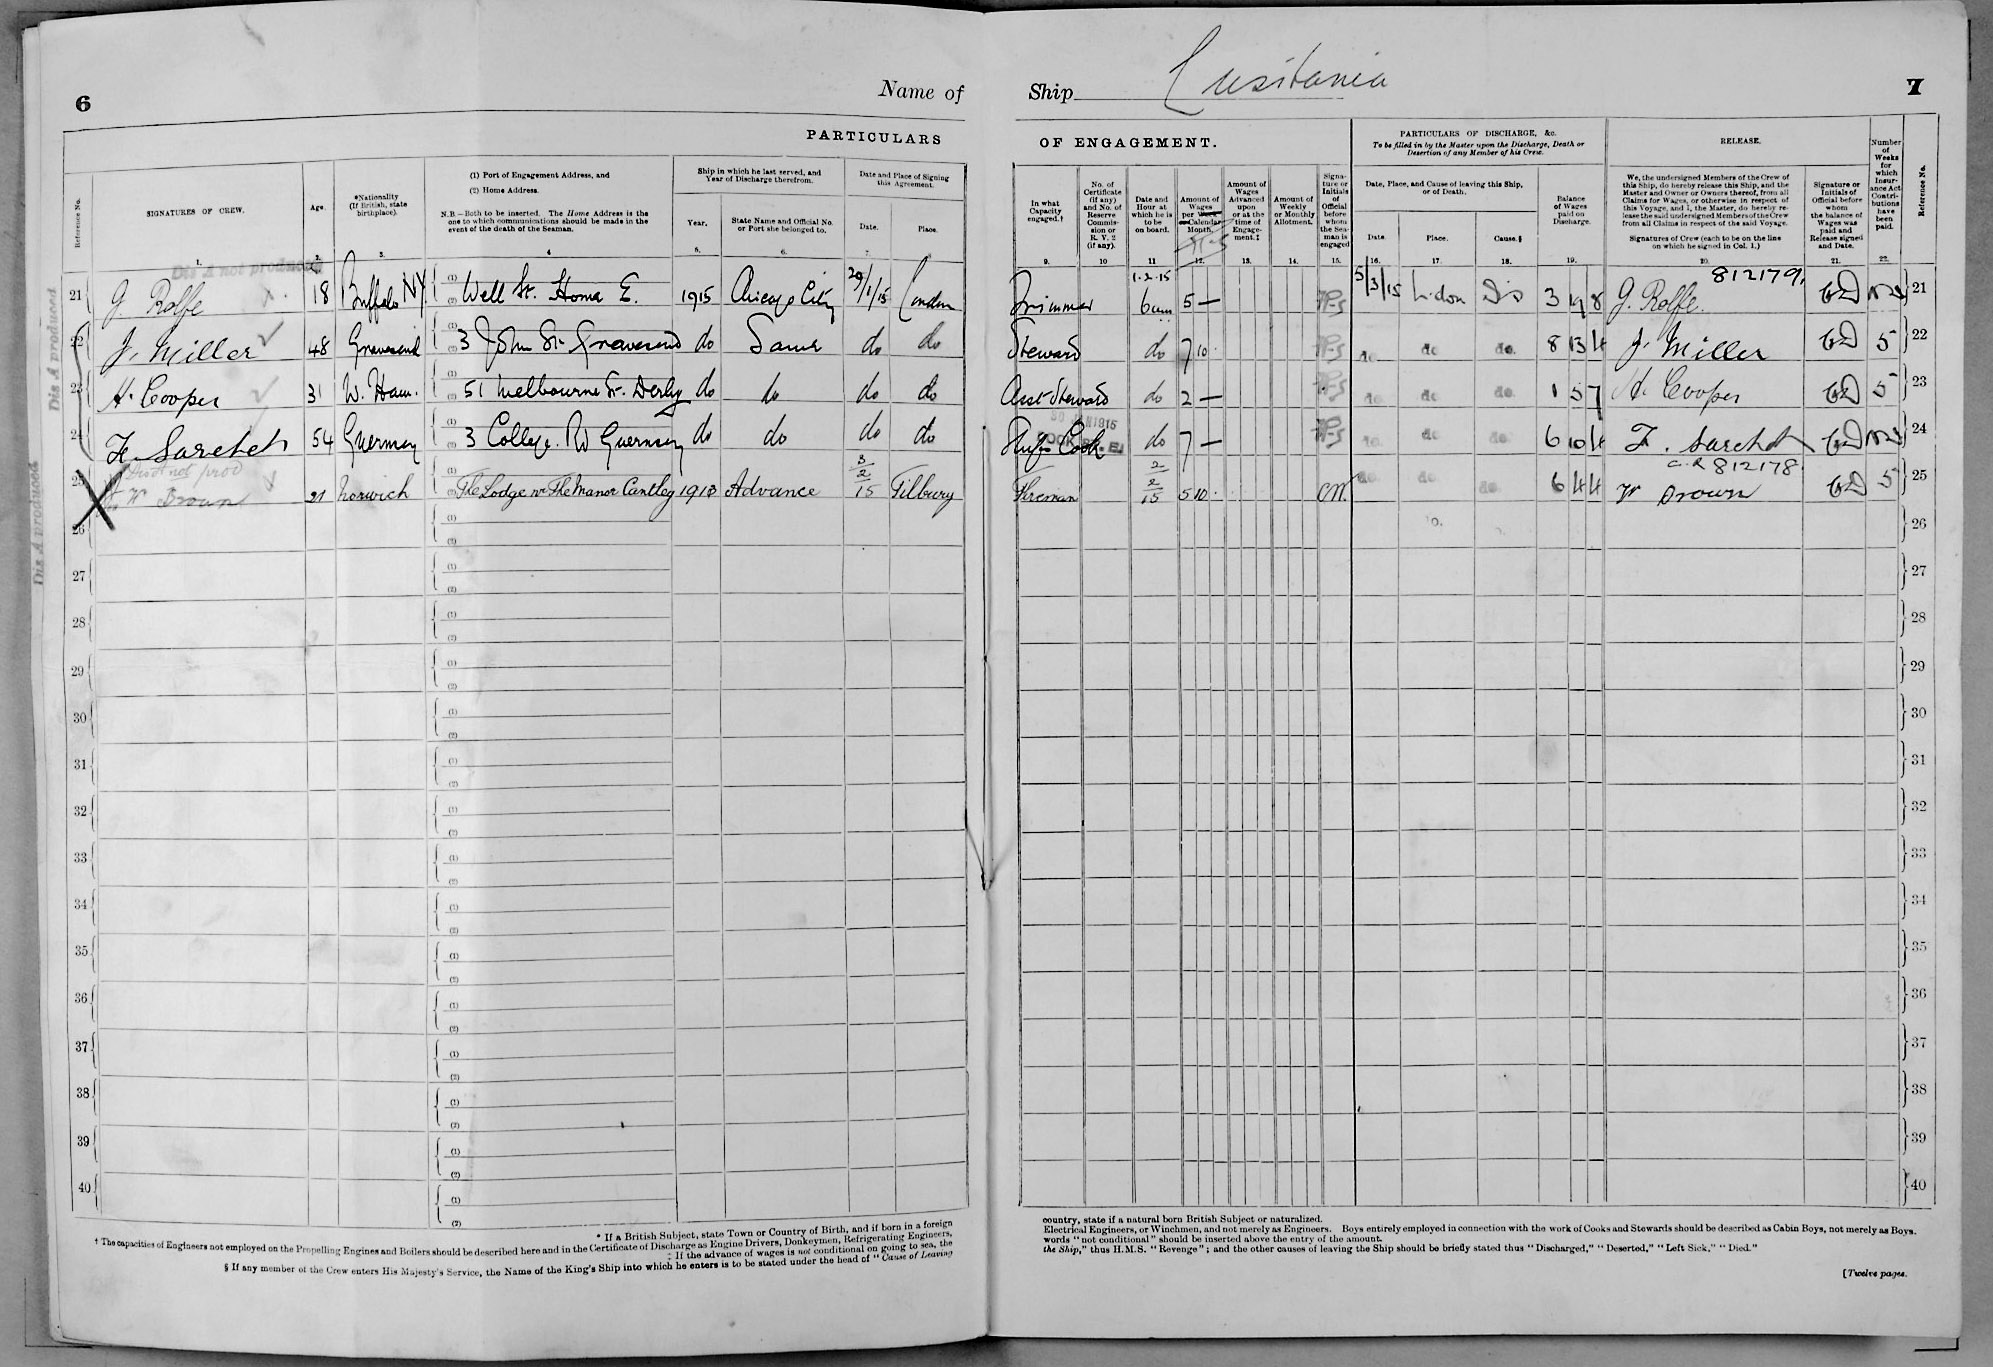 6
Name of
Ship Lusitania
7
PARTICULARS
OF ENGAGEMENT.
Reference No.
SIGNATURES OF CREW.
1.
Age.
2.
*Nationality
(If British, state
birthplace).
3.
(1) Port of Engagement Address, and
(2) Home Address.
N.B—Both to be inserted. The Home Address is the
one to which communications should be made in the
event of the death of the Seaman.
4
Ship in which he last served, and
Year of Discharge therefrom.
Year.
5.
State Name and Official No.
or Port she belonged to.
6.
Date and Place of Signing
this Agreement.
Date.
7.
Place.
In what
Capacity
engaged.†
9.
No. of
Certificate
(if any)
and No. of
Reserve
Commis-
sion or
R. V. 2
(if any).
10
Date and
Hour at
which he is
to be
on board.
11
Amount of
Wages
per Week
Calendar
Month.
12.
Amount of
Wages
Advanced
upon
or at the
time of
Engage-
ment.‡
13.
Amount of
Weekly
or Monthly
Allotment.
14.
Signa-
ture or
Initials
of
Official
before
whom
the Sea-
man is
engaged
15.
PARTICULARS OF DISCHARGE, &c.
To be filled in by the Master upon the Discharge, Death or
Desertion of any Member of his Crew.
Date, Place, and Cause of leaving this Ship,
or of Death.
Date.
16.
Place.
17.
Cause.§
18.
Balance
of Wages
paid on
Discharge.
19.
RELEASE.
We, the undersigned Members of the Crew of
this Ship, do hereby release this Ship, and the
Master and Owner or Owners thereof, from all
Claims for Wages, or otherwise in respect of
this Voyage, and I, the Master, do hereby re-
lease the said undersigned Members of the Crew
from all Claims in respect of the said Voyage.
Signatures of Crew (each to be on the line
on which he signed in Col. 1.)
20.
Signature or
Initials of
Official before
whom
the balance of
Wages was
paid and
Release signed
and Date.
21.
Number
of
Weeks
for
which
Insur-
ance Act
Contri-
butions
have
been
paid.
22.
Reference No.
Dis A not produced
Dis A produced
Dis A produced
21 G. Rolfe 18 Buffalo NY (1) (2) Well St. Homa E. 1915 Chicago City 29/1/15 London Trimmer 1.2.15 6am 5 — 5/3/15 London Dis 3 19 8 G. Rolfe. 812179. 21
22 J. Miller 48 Gravesend (1) (2) 3 John St. Gravesend do Same do do Steward do 7 10 do. do do. 8 13 4 J. Miller 5 22
23 H. Cooper 31 W. Ham. (1) (2) 51 Melbourne St. Derby do do do do Asst Steward do 2 — do. do do. 1 5 7 H. Cooper 5 23
24 F. Sarchet 54 Guernsey (1) (2) 3 College. Rd Guernsey do do do do Ships Cook do 7 — do. do do. 6 10 4 F. Sarchet 24
25 Dis A not prod W Brown 21 Norwich (1) (2) The Lodge nr The Manor Cantley 1913 Advance 3/2/15 Tilbury Fireman 2/2/15 5 10 do. do. do. 6 4 4 W Brown 812178 5 25
26 (1) (2) 26
27 (1) (2) 27
28 (1) (2) 28
29 (1) (2) 29
30 (1) (2) 30
31 (1) (2) 31
32 (1) (2) 32
33 (1) (2) 33
34 (1) (2) 34
35 (1) (2) 35
36 (1) (2) 36
37 (1) (2) 37
38 (1) (2) 38
39 (1) (2) 39
40 (1) (2) 40
* If a British Subject, state Town or Country of Birth, and if born in a foreign
† The capacities of Engineers not employed on the Propelling Engines and Boilers should be described here and in the Certificate of Discharge as Engine Drivers, Donkeymen, Refrigerating Engineers,
‡ If the advance of wages is not conditional on going to sea, the
§ If any member of the Crew enters His Majesty's Service, the Name of the King's Ship into which he enters is to be stated under the head of "Cause of Leaving
country, state if a natural born British Subject or naturalized.
Electrical Engineers, or Winchmen, and not merely as Engineers. Boys entirely employed in connection with the work of Cooks and Stewards should be described as Cabin Boys, not merely as Boys.
words "not conditional" should be inserted above the entry of the amount.
the Ship," thus H.M.S. "Revenge"; and the other causes of leaving the Ship should be briefly stated thus "Discharged," "Deserted," "Left Sick," "Died."
[Twelve pages.